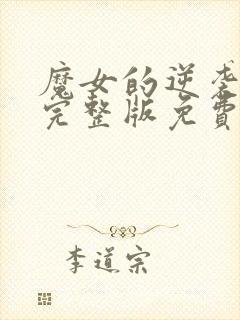 魔女的逆袭
完整版免费
李道宗